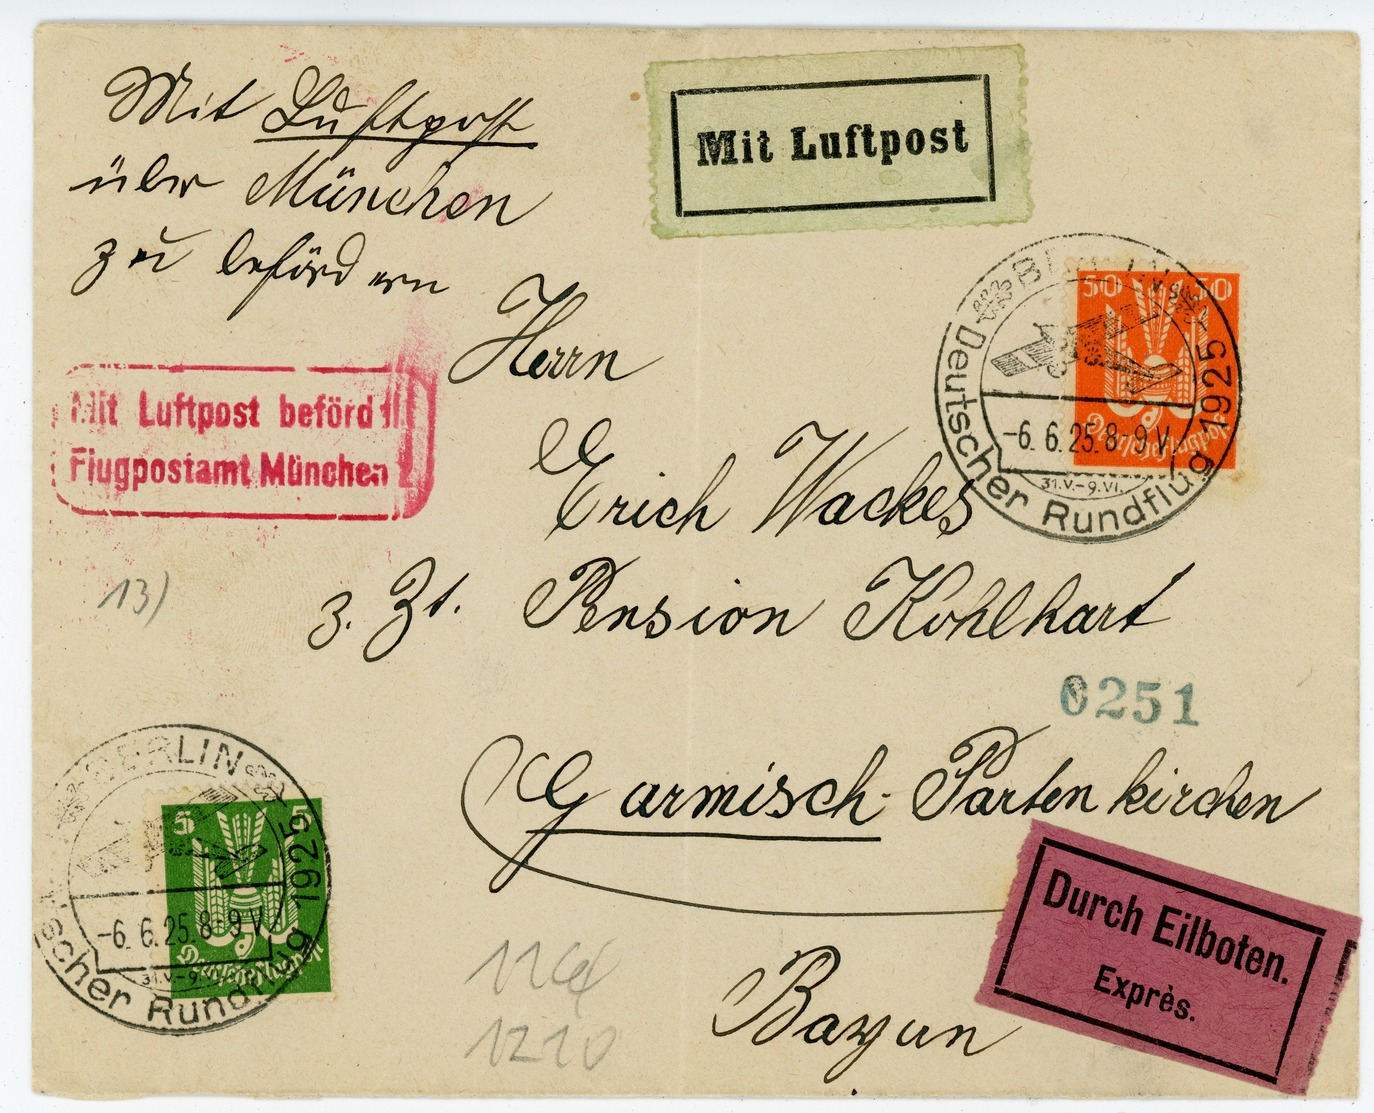 Mit Luftpost
über München
zu befördern
Mit Luftpost
Herrn
Erich Wackes
z. Zt. Pension Kohlhart
Garmisch-Partenkirchen
Bayern
Mit Luftpost beförd
Flugpostamt München
50 50
BERLIN
Deutscher Rundflug 1925
-6. 6. 25. 8-9 V.
31.V.-9.VI.
13)
0251
5 5
BERLIN
scher Rundflug 1925
-6. 6. 25. 8-9 V.
31.V.-9.
1210
Durch Eilboten.
Exprès.